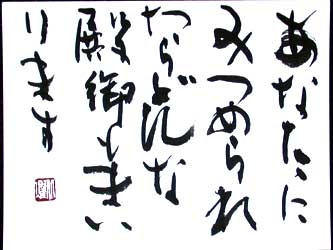 あなたに
みつめられ
たらどんな
殿御もまい
ります